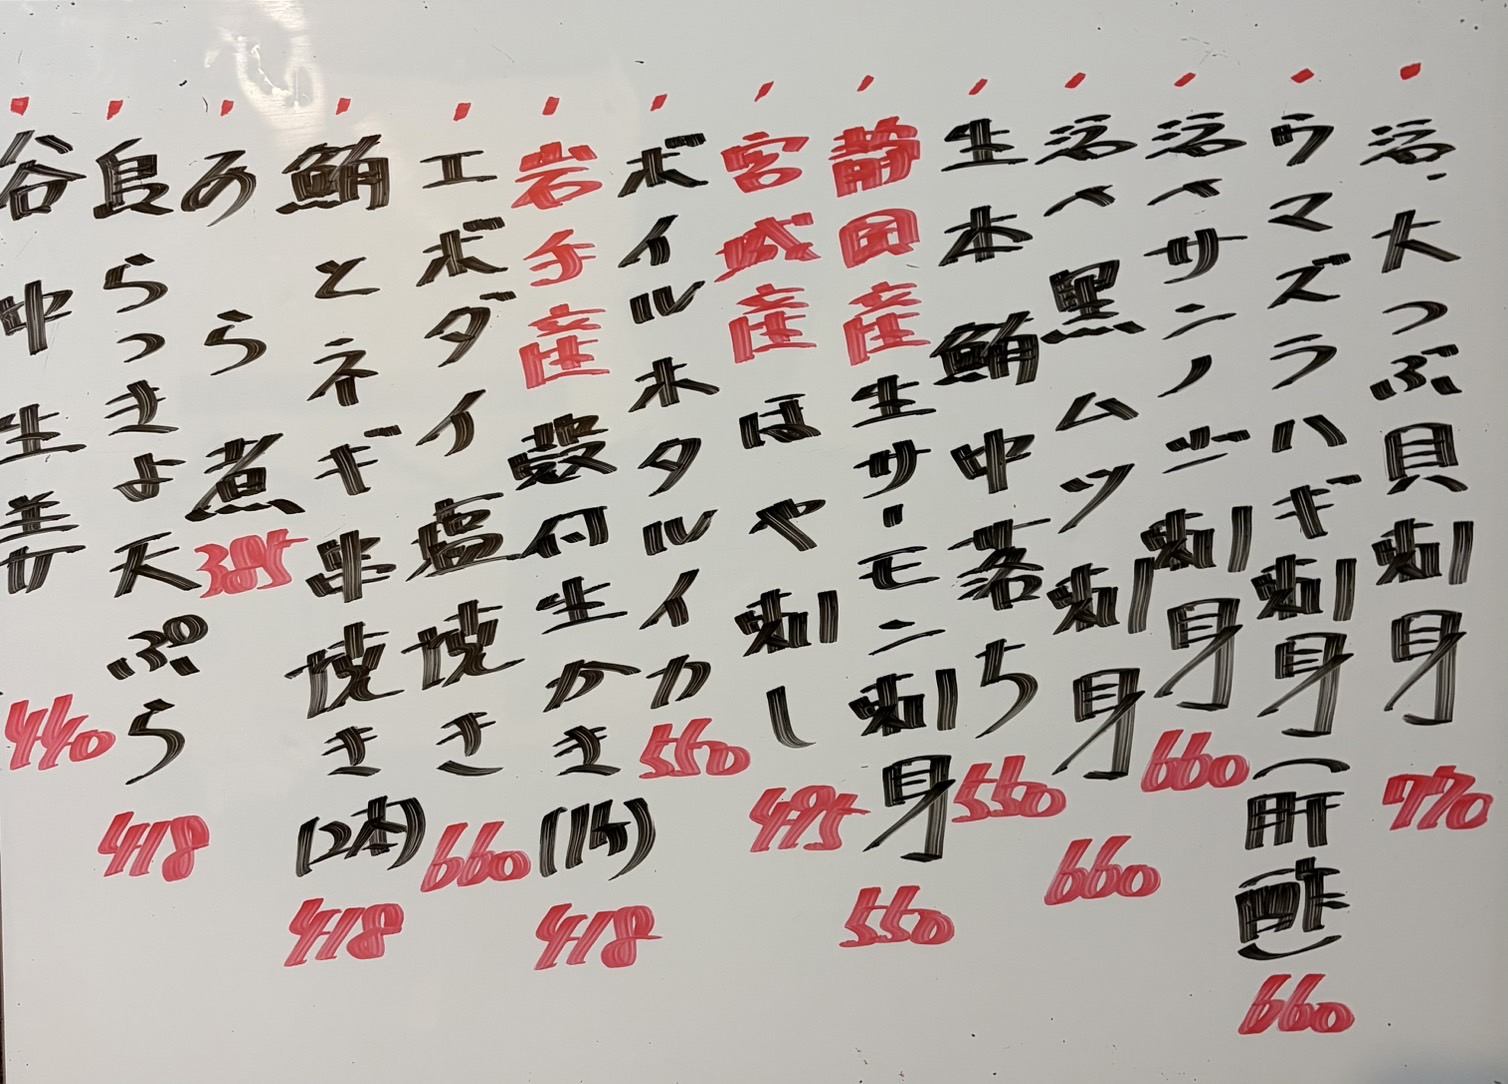 活・大つぶ貝刺身 770
ウマズラハギ刺身(肝酢) 660
活〆サンノジ刺身 660
活〆黒ムツ刺身 660
生本鮪中落ち 550
静岡産生サーモン刺身 550
宮城産ほや刺し 495
ボイルホタルイカ 550
岩手産殻付生かき(1ヶ) 418
エボダイ塩焼き 660
鮪とネギ串焼き(2本) 418
あら煮 385
島らっきょ天ぷら 418
谷中生姜 440